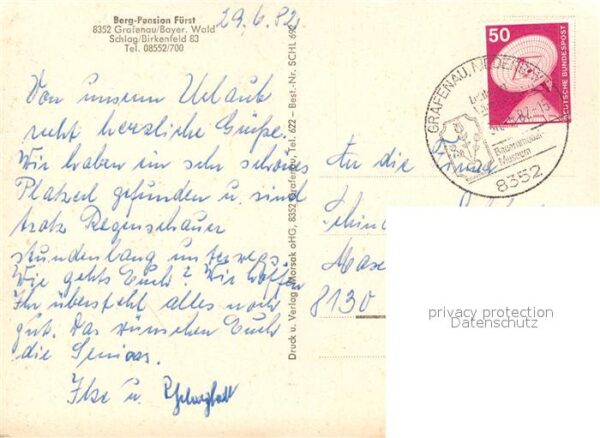 Berg-Pension Fürst
8352 Grafenau/Bayer. Wald
Schlag/Birkenfeld 83
Tel. 08552/700
29.6.82
Von unserem Urlaub
recht herzliche Grüße.
Wir haben ein sehr schönes
Platzerl gefunden u. sind
trotz Regenschauer
stundenlang unterwegs.
Wie gehts Euch? Wir hoffen
Ihr übersteht alles noch
gut. Das wünschen Euch
die Senioss.
Ilse u.
Druck u. Verlag Morsak oHG, 8352 Grafenau, Tel. 622 – Best.-Nr. SCHL 692
50
DEUTSCHE BUNDESPOST
GRAFENAU,
Bauernmöbel-
Museum
8352
An die
8130
privacy protection
Datenschutz